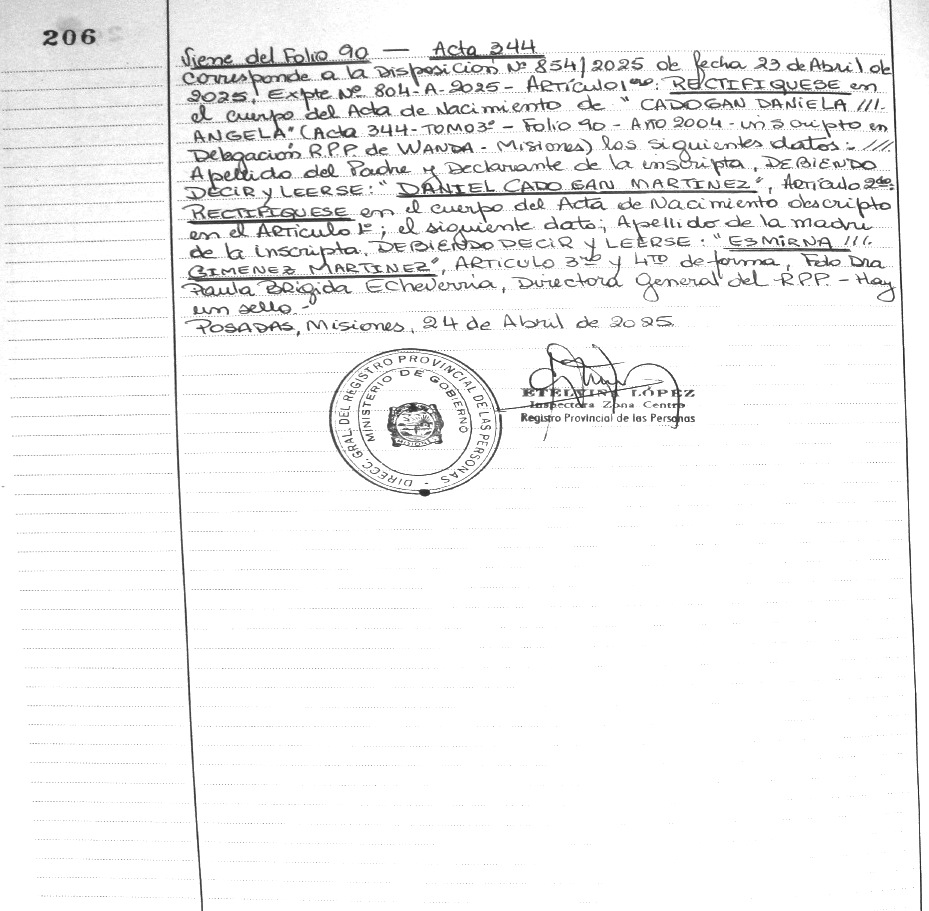 206
Viene del Folio 90 — Acta 344
Corresponde a la Disposición Nº 854/2025 de fecha 23 de Abril de
2025, Expte Nº 804-A-2025 - Artículo 1ero: RECTIFIQUESE en
el cuerpo del Acta de Nacimiento de "CADOGAN DANIELA ///.
ANGELA" (Acta 344 - TOMO 3º - Folio 90 - Año 2004 - inscripto en
Delegación R.P.P. de WANDA - Misiones) los siguientes datos: ///.
Apellido del Padre y Declarante de la inscripta, DEBIENDO
DECIR y LEERSE: "DANIEL CADOGAN MARTINEZ", Artículo 2do:
RECTIFIQUESE en el cuerpo del Acta de Nacimiento descripto
en el Artículo 1º; el siguiente dato; Apellido de la madre
de la inscripta. DEBIENDO DECIR y LEERSE: "ESMIRNA ///.
GIMENEZ MARTINEZ", ARTICULO 3ro y 4TO de forma, Fdo Dra
Paula Brigida Echeverria, Directora General del RPP. - Hay
un sello.-
POSADAS, Misiones, 24 de Abril de 2025.
DIRECC. GRAL. DEL REGISTRO PROVINCIAL DE LAS PERSONAS -
MINISTERIO DE GOBIERNO
ETELVINA LÓPEZ
Inspectora Zona Centro
Registro Provincial de las Personas